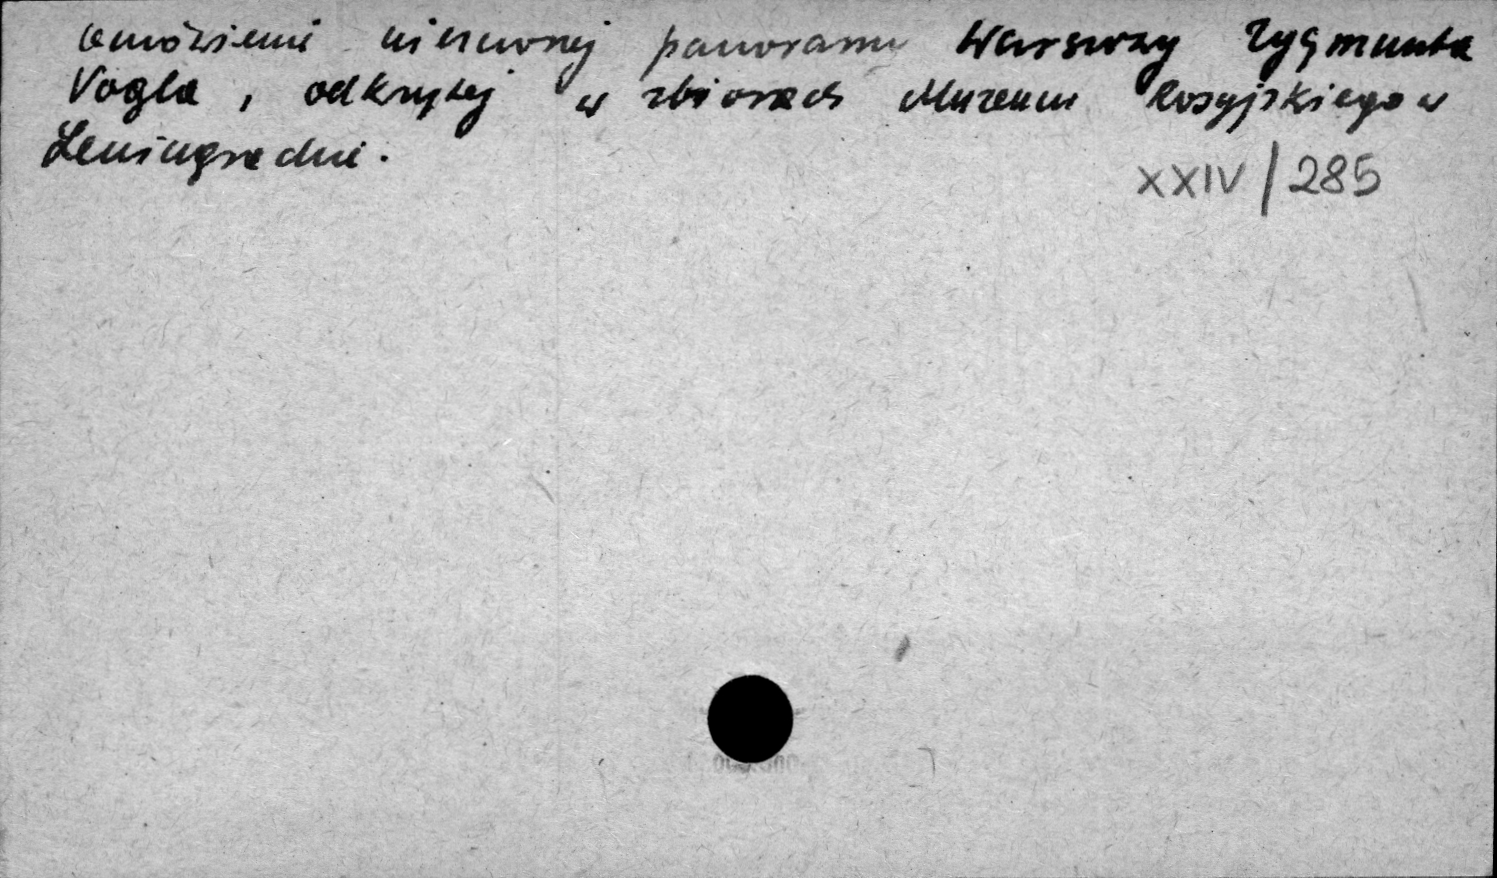 omówienie nieznanej panoramy Warszawy Zygmunta
Vogla, odkrytej w zbiorach Muzeum Rosyjskiego w
Leningradzie.
XXIV/285